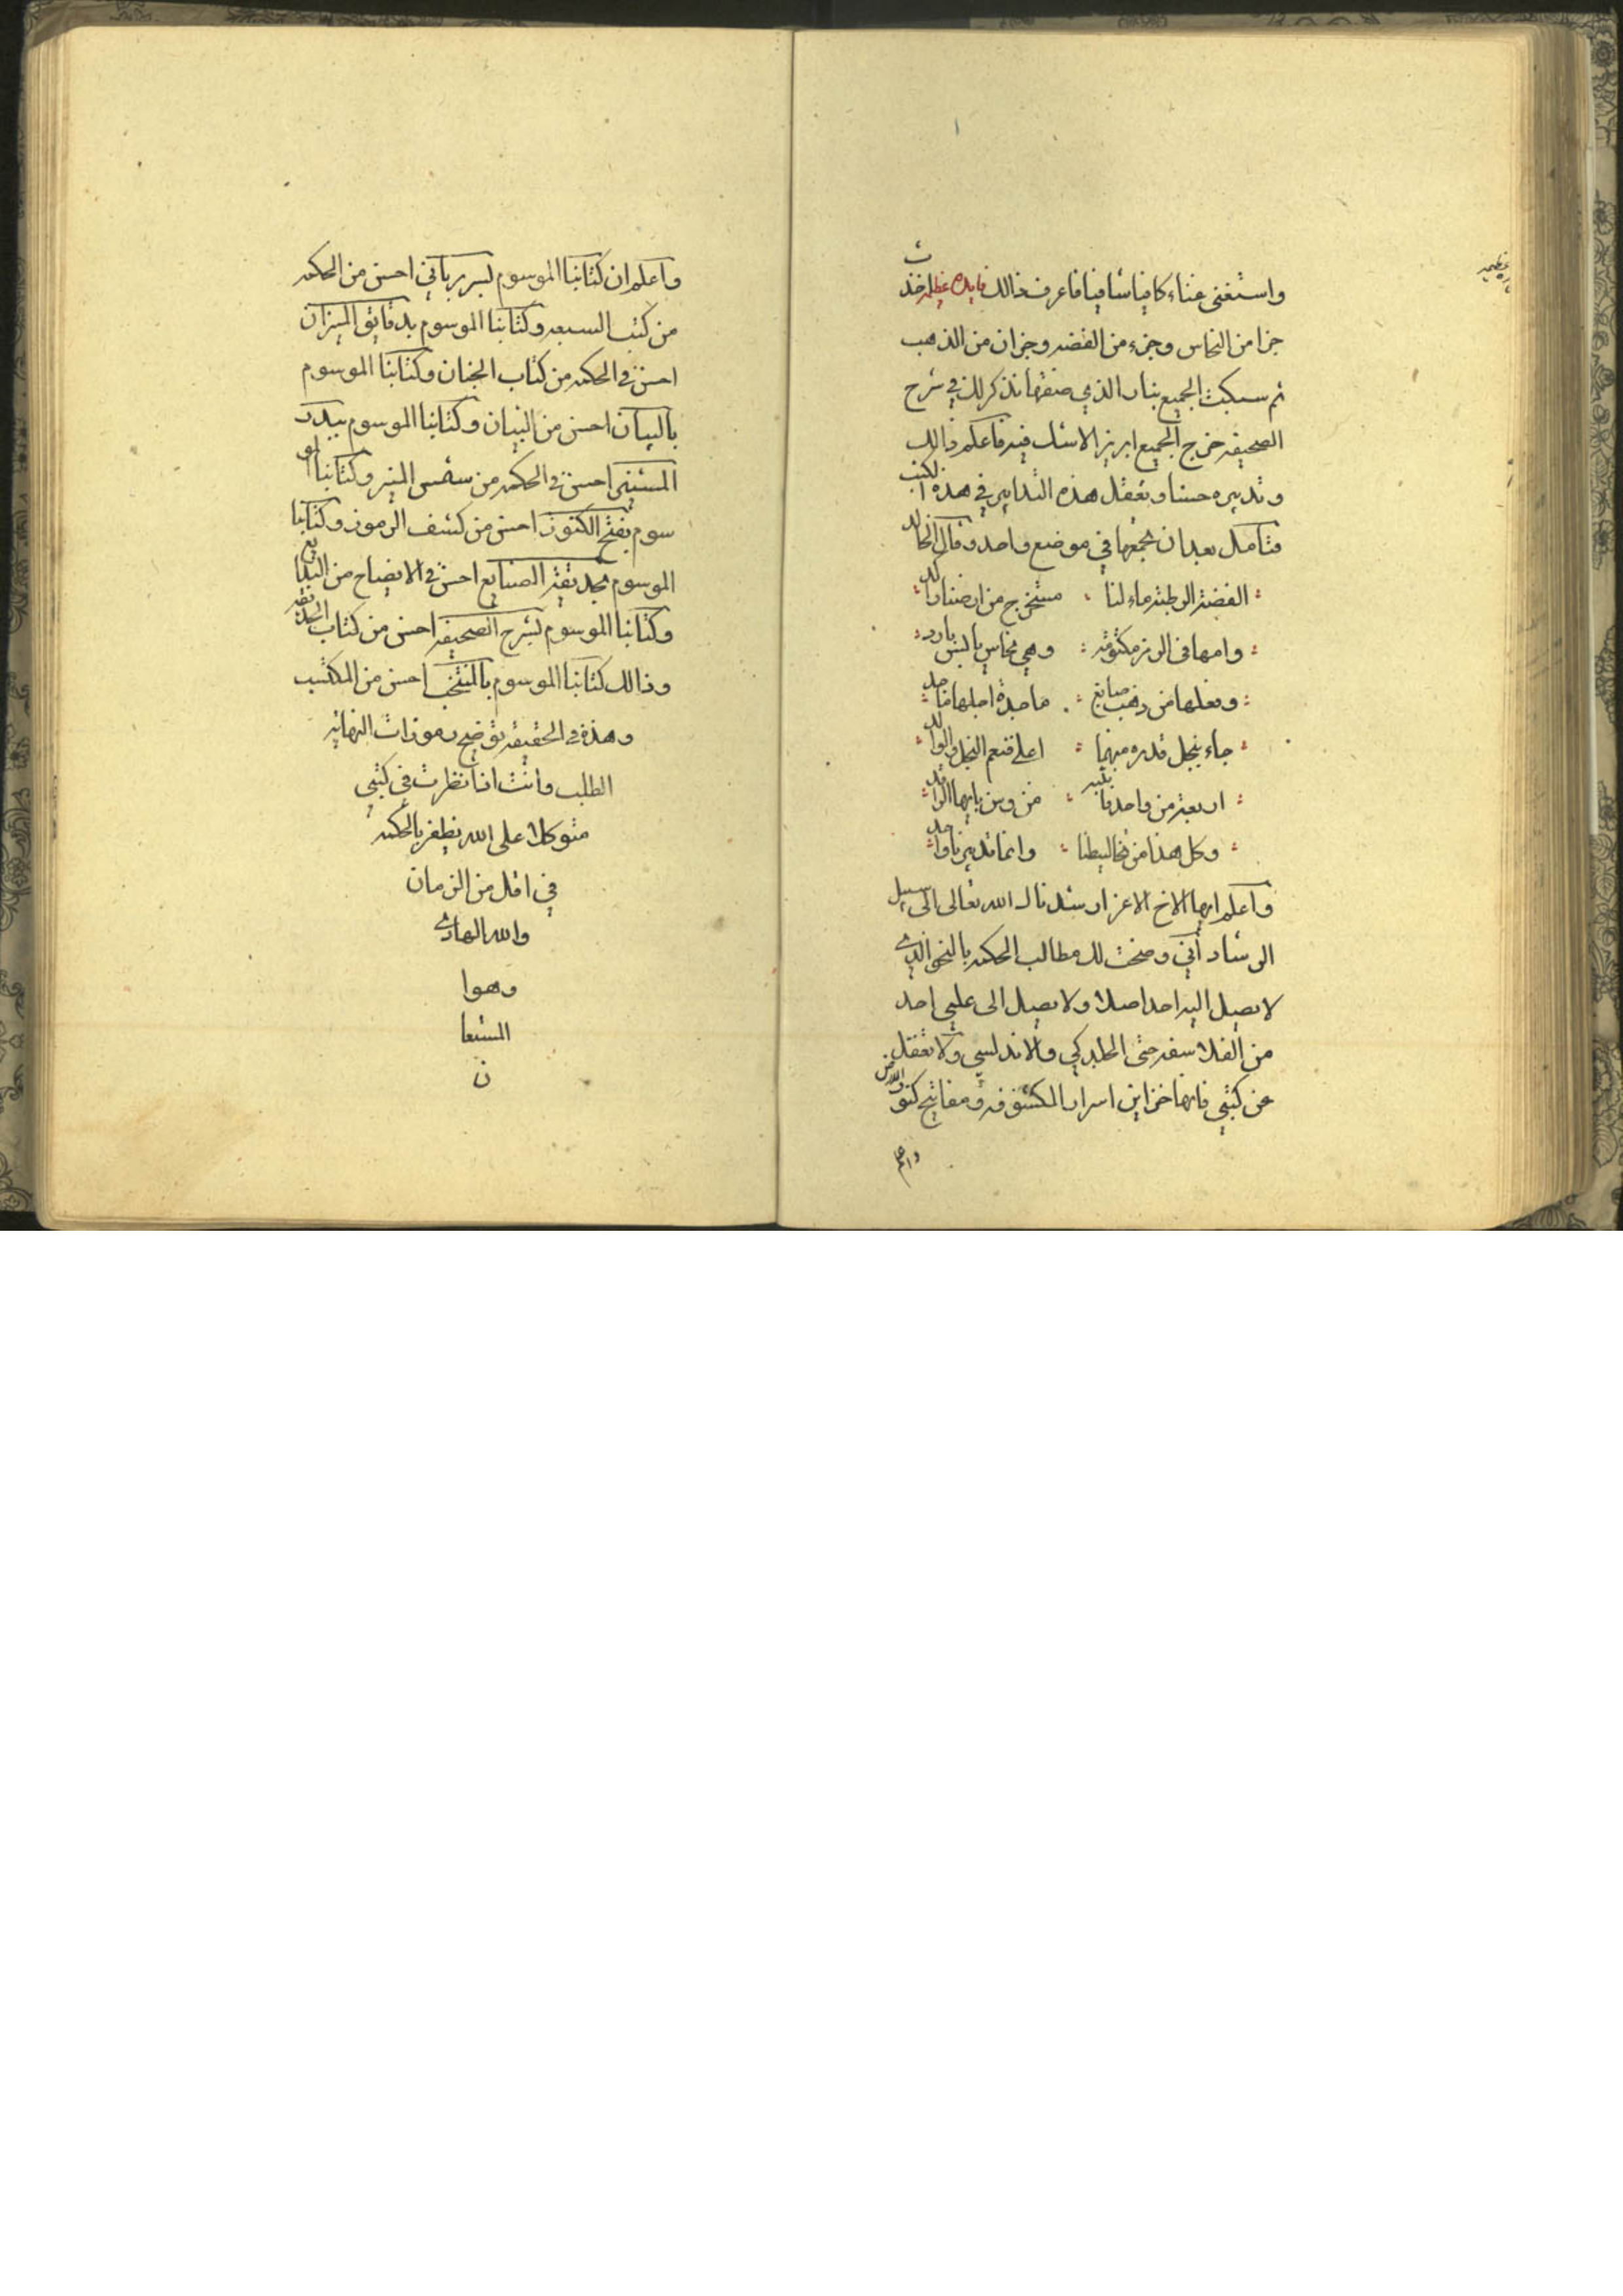 واستغنى غناء كافيا شافيا فاعرف ذالك فايده عظيمه خذ
جزا من النحاس وجزء من الفضه وجزان من الذهب
ثم سبكت الجميع بنار الذي صنفها نذكر لك في شرح
الصحيفه خرج الجميع ابريز الاشك فيه فاعلم ذالك
وتدبره حسنا وتعقل هذه التدابير في هذه الكتب
فتامل بعد ان تجمعها في موضع واحد وقال الخالد
الفضة الرطبة ماء لنا مستخرج من ارضنا راكد
وامها في الرمز مكتومة وهي نحاس يابس بارد
وبعلها من ذهب صابغ ماجدة اجلها ماجد
جاء بنجل قدره مبهما اعلى فنعم النجل والوالد
اربعة من واحد
وكل هذا من وانما تدبيرنا واحد
واعلم ايها الاخ الاعز ارشدناك الله تعالى الى سبيل
الرشاد أني وضحت لك مطالب الحكمه بالنحو الذي
لا يصل اليه احد اصلا ولا يصل الى علمي احد
من الفلاسفه حتى الجلدكي والاندلسي ولا تغفل
عن كتبي فانها خزاين اسرار المكشوفه ومفاتيح كنوز
واعلم
واعلم ان كتابنا الموسوم بسر رباني احسن من الحكمه
من كتب السبعه وكتابنا الموسوم بدقايق الميزان
احسن في الحكمه من كتاب الجنان وكتابنا الموسوم
بالبيان احسن من التبيان وكتابنا الموسوم ببدر
المنير احسن في الحكمه من شمس المنير وكتابنا المو
سوم بفتح الكنوز احسن من كشف الرموز وكتابنا
الموسوم بحديقة الصنايع احسن في الايضاح من البدايع
وكتابنا الموسوم بشرح الصحيفه احسن من كتاب
وذالك كتابنا الموسوم بالمنتخب احسن من المكتسب
وهذه في الحقيقه توضيح رموزات النهاية
الطلب وانت اذا نظرت في كتبي
متوكلا على الله تظفر بالحكمه
في اقل من الزمان
والله الهادي
وهوا
المستعا
ن